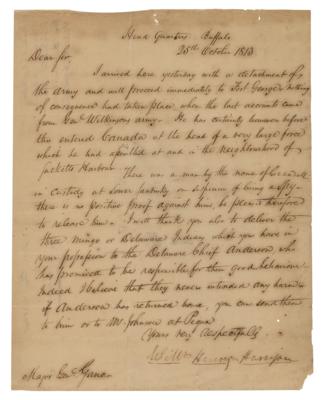 Head Quarters Buffalo
25th October 1813
Dear Sir,
I arrived here yesterday with a detachment of
the Army and will proceed immediately to Fort George, nothing
of consequence had taken place when the last accounts came
from Genl Wilkinsons army. He has certainly however before
this entered Canada at the head of a very large force
which he had assembled at and in the neighbourhood of
Jacketts Harbour. There was a man by the name of
in Custody at Lower Sandusky on suspicion of being a spy
there is no positive proof against him, be pleas'd therefore
to release him. I will thank you also to deliver the
three Mingo or Delaware Indians which you have in
your possession to the Delaware Chief Anderson who
has promised to be responsible for their good behaviour
indeed I believe that they never intended any harm
if Anderson has returned home, you can send them
to him or to Mr Johnson at Piqua
Yours very respectfully
Willm Henry Harrison
Major Genl Gano